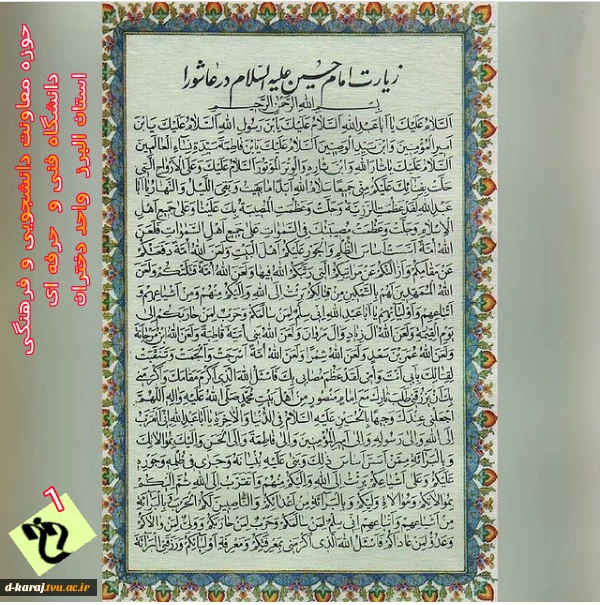 زیارت امام حسین علیه السلام در عاشورا
بسم الله الرحمن الرحیم
اَلسَّلامُ عَلَیْکَ یا اَبا عَبْدِاللهِ اَلسَّلامُ عَلَیْکَ یَابْنَ رَسُولِ اللهِ اَلسَّلامُ عَلَیْکَ یَابْنَ
اَمیرِالْمُؤْمِنینَ وَابْنَ سَیِّدِ الْوَصِیّینَ اَلسَّلامُ عَلَیْکَ یَابْنَ فاطِمَةَ سَیِّدَةِ نِساءِ الْعالَمینَ
اَلسَّلامُ عَلَیْکَ یا ثارَ اللهِ وَابْنَ ثارِهِ وَالْوِتْرَ الْمَوْتُورَ اَلسَّلامُ عَلَیْکَ وَعَلَی الْاَرْواحِ الَّتی
حَلَّتْ بِفِنائِکَ عَلَیْکُمْ مِنّی جَمیعًا سَلامُ اللهِ اَبَدًا ما بَقیتُ وَبَقِیَ اللَّیْلُ وَالنَّهارُ یا اَبا
عَبْدِاللهِ لَقَدْ عَظُمَتِ الرَّزِیَّةُ وَجَلَّتْ وَعَظُمَتِ الْمُصیبَةُ بِکَ عَلَیْنا وَعَلی جَمیعِ اَهْلِ
الْاِسْلامِ وَجَلَّتْ وَعَظُمَتْ مُصیبَتُکَ فِی السَّمواتِ عَلی جَمیعِ اَهْلِ السَّمواتِ فَلَعَنَ
اللهُ اُمَّةً اَسَّسَتْ اَساسَ الظُّلْمِ وَالْجَوْرِ عَلَیْکُمْ اَهْلَ الْبَیْتِ وَلَعَنَ اللهُ اُمَّةً دَفَعَتْکُمْ
عَنْ مَقامِکُمْ وَاَزالَتْکُمْ عَنْ مَراتِبِکُمُ الَّتی رَتَّبَکُمُ اللهُ فیها وَلَعَنَ اللهُ اُمَّةً قَتَلَتْکُمْ وَلَعَنَ
اللهُ الْمُمَهِّدینَ لَهُمْ بِالتَّمْکینِ مِنْ قِتالِکُمْ بَرِئْتُ اِلَی اللهِ وَاِلَیْکُمْ مِنْهُمْ وَمِنْ اَشْیاعِهِمْ وَ
اَتْباعِهِمْ وَاَوْلِیائِهِمْ یا اَبا عَبْدِاللهِ اِنّی سِلْمٌ لِمَنْ سالَمَکُمْ وَحَرْبٌ لِمَنْ حارَبَکُمْ اِلی
یَوْمِ الْقِیمَةِ وَلَعَنَ اللهُ آلَ زِیادٍ وَآلَ مَرْوانَ وَلَعَنَ اللهُ بَنی اُمَیَّةَ قاطِبَةً وَلَعَنَ اللهُ ابْنَ مَرْجانَةَ
وَلَعَنَ اللهُ عُمَرَ بْنَ سَعْدٍ وَلَعَنَ اللهُ شِمْرًا وَلَعَنَ اللهُ اُمَّةً اَسْرَجَتْ وَاَلْجَمَتْ وَتَنَقَّبَتْ
لِقِتالِکَ بِاَبی اَنْتَ وَاُمّی لَقَدْ عَظُمَ مُصابی بِکَ فَاَسْئَلُ اللهَ الَّذی اَکْرَمَ مَقامَکَ وَاَکْرَمَنی
بِکَ اَنْ یَرْزُقَنی طَلَبَ ثارِکَ مَعَ اِمامٍ مَنْصُورٍ مِنْ اَهْلِ بَیْتِ مُحَمَّدٍ صَلَّی اللهُ عَلَیْهِ وَآلِهِ اَللّهُمَّ
اجْعَلْنی عِنْدَکَ وَجیهًا بِالْحُسَیْنِ عَلَیْهِ السَّلامُ فِی الدُّنْیا وَالْاخِرَةِ یا اَبا عَبْدِاللهِ اِنّی اَتَقَرَّبُ
اِلَی اللهِ وَاِلی رَسُولِهِ وَاِلی اَمیرِالْمُؤْمِنینَ وَاِلی فاطِمَةَ وَاِلَی الْحَسَنِ وَاِلَیْکَ بِمُوالاتِکَ
وَبِالْبَرآئَةِ مِمَّنْ اَسَّسَ اَساسَ ذلِکَ وَبَنی عَلَیْهِ بُنْیانَهُ وَجَری فی ظُلْمِهِ وَجَوْرِهِ
عَلَیْکُمْ وَعَلی اَشْیاعِکُمْ بَرِئْتُ اِلَی اللهِ وَاِلَیْکُمْ مِنْهُمْ وَاَتَقَرَّبُ اِلَی اللهِ ثُمَّ اِلَیْکُمْ
بِمُوالاتِکُمْ وَمُوالاةِ وَلِیِّکُمْ وَبِالْبَرآئَةِ مِنْ اَعْدائِکُمْ وَالنّاصِبینَ لَکُمُ الْحَرْبَ وَبِالْبَرآئَةِ
مِنْ اَشْیاعِهِمْ وَاَتْباعِهِمْ اِنّی سِلْمٌ لِمَنْ سالَمَکُمْ وَحَرْبٌ لِمَنْ حارَبَکُمْ وَوَلِیٌّ لِمَنْ والاکُمْ
وَعَدُوٌّ لِمَنْ عاداکُمْ فَاَسْئَلُ اللهَ الَّذی اَکْرَمَنی بِمَعْرِفَتِکُمْ وَمَعْرِفَةِ اَوْلِیائِکُمْ وَرَزَقَنِی الْبَرآئَةَ
حوزه معاونت دانشجویی و فرهنگی
دانشگاه فنی و حرفه ای
استان البرز واحد دختران
1
d-karaj.tvu.ac.ir